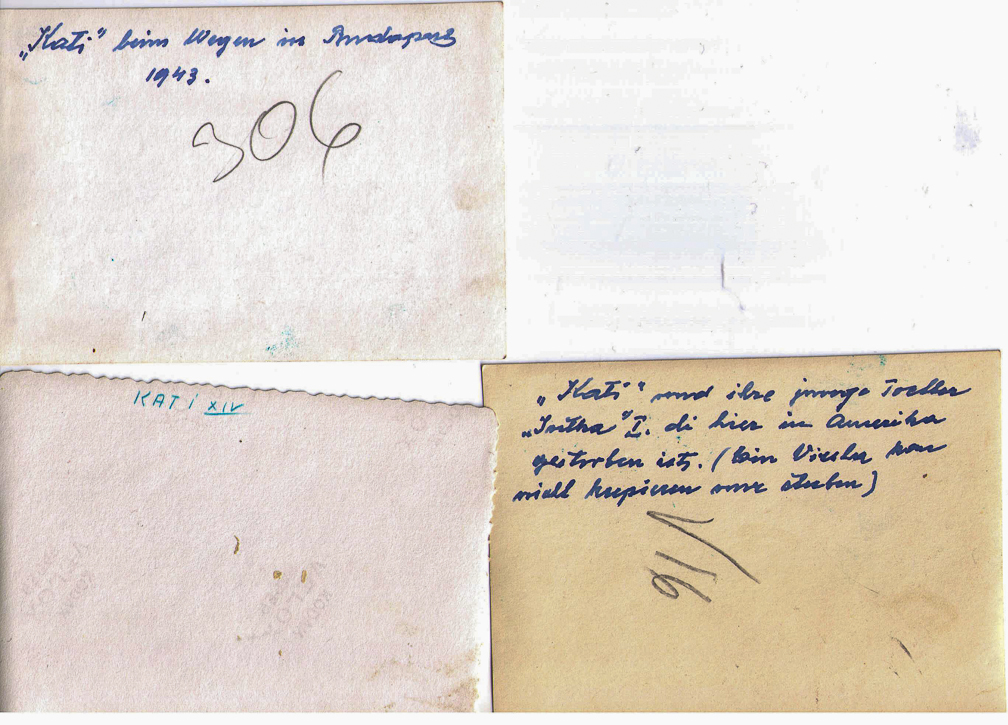 „Kati" beim Wegen in Budapest
1943.
306
KATI XIV
„Kati" und ihre junge Tochter
„Jutka" I. di hier in Amerika
gestorben ist. (Ein Viesler kan
nicht krepieren nur sterben)